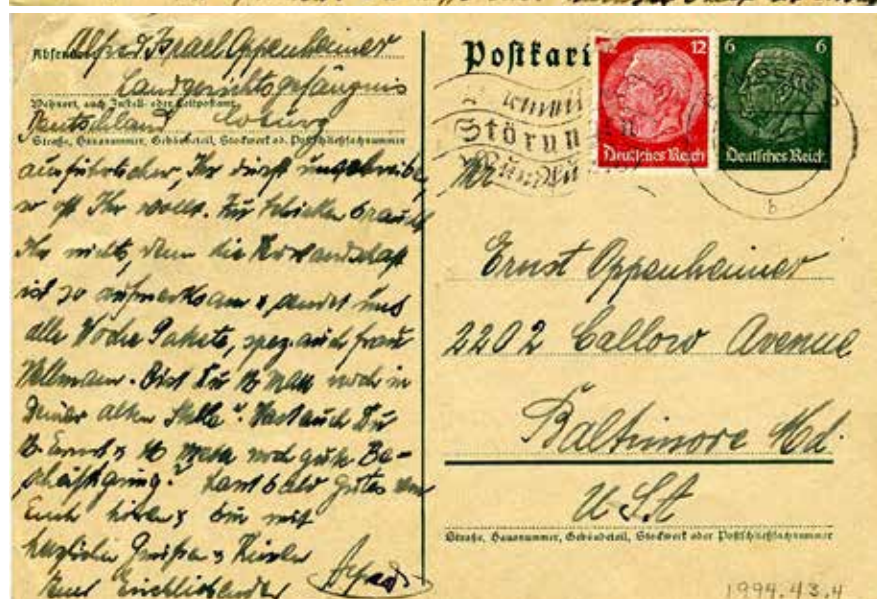 Absender: Alfred Israel Oppenheimer
Landgerichtsgefängnis
Wohnort, auch Zustell- oder Leitpostamt
Deutschland Coburg
Straße, Hausnummer, Gebäudeteil, Stockwerk od. Postschließfachnummer
ausführlicher, Ihr dürft
so oft Ihr wollt. Zu schicken braucht
Ihr nichts, denn die Verwandschaft
ist so aufmerksam & sendet uns
alle Woche Pakete, spez. auch Frau
Bist Du noch in
Deiner alten Stelle? Hast auch Du
Ernst & noch gute Be-
schäftigung? bald Gutes von
Euch hören & bin mit
herzlichen Grüßen & Küssen
Euer
Alfred
Postkarte
12 12
Deutsches Reich
6 6
Deutsches Reich
Störun
b
Ernst Oppenheimer
2202 Callow Avenue
Baltimore Md.
USA
Straße, Hausnummer, Gebäudeteil, Stockwerk oder Postschließfachnummer
1994.43.4